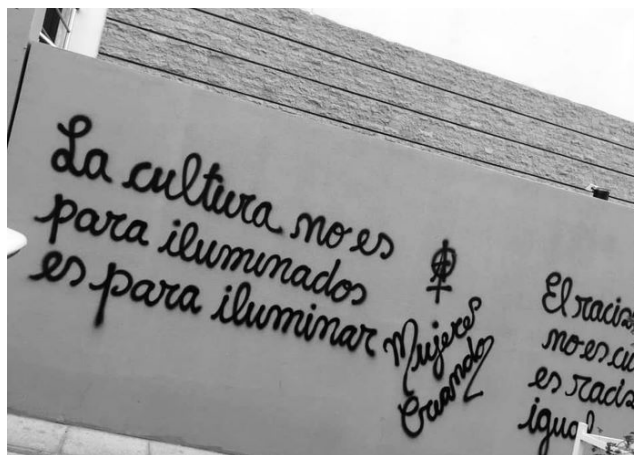 La cultura no es
para iluminados
es para iluminar
Mujeres
Creando
El
no es
es
igual